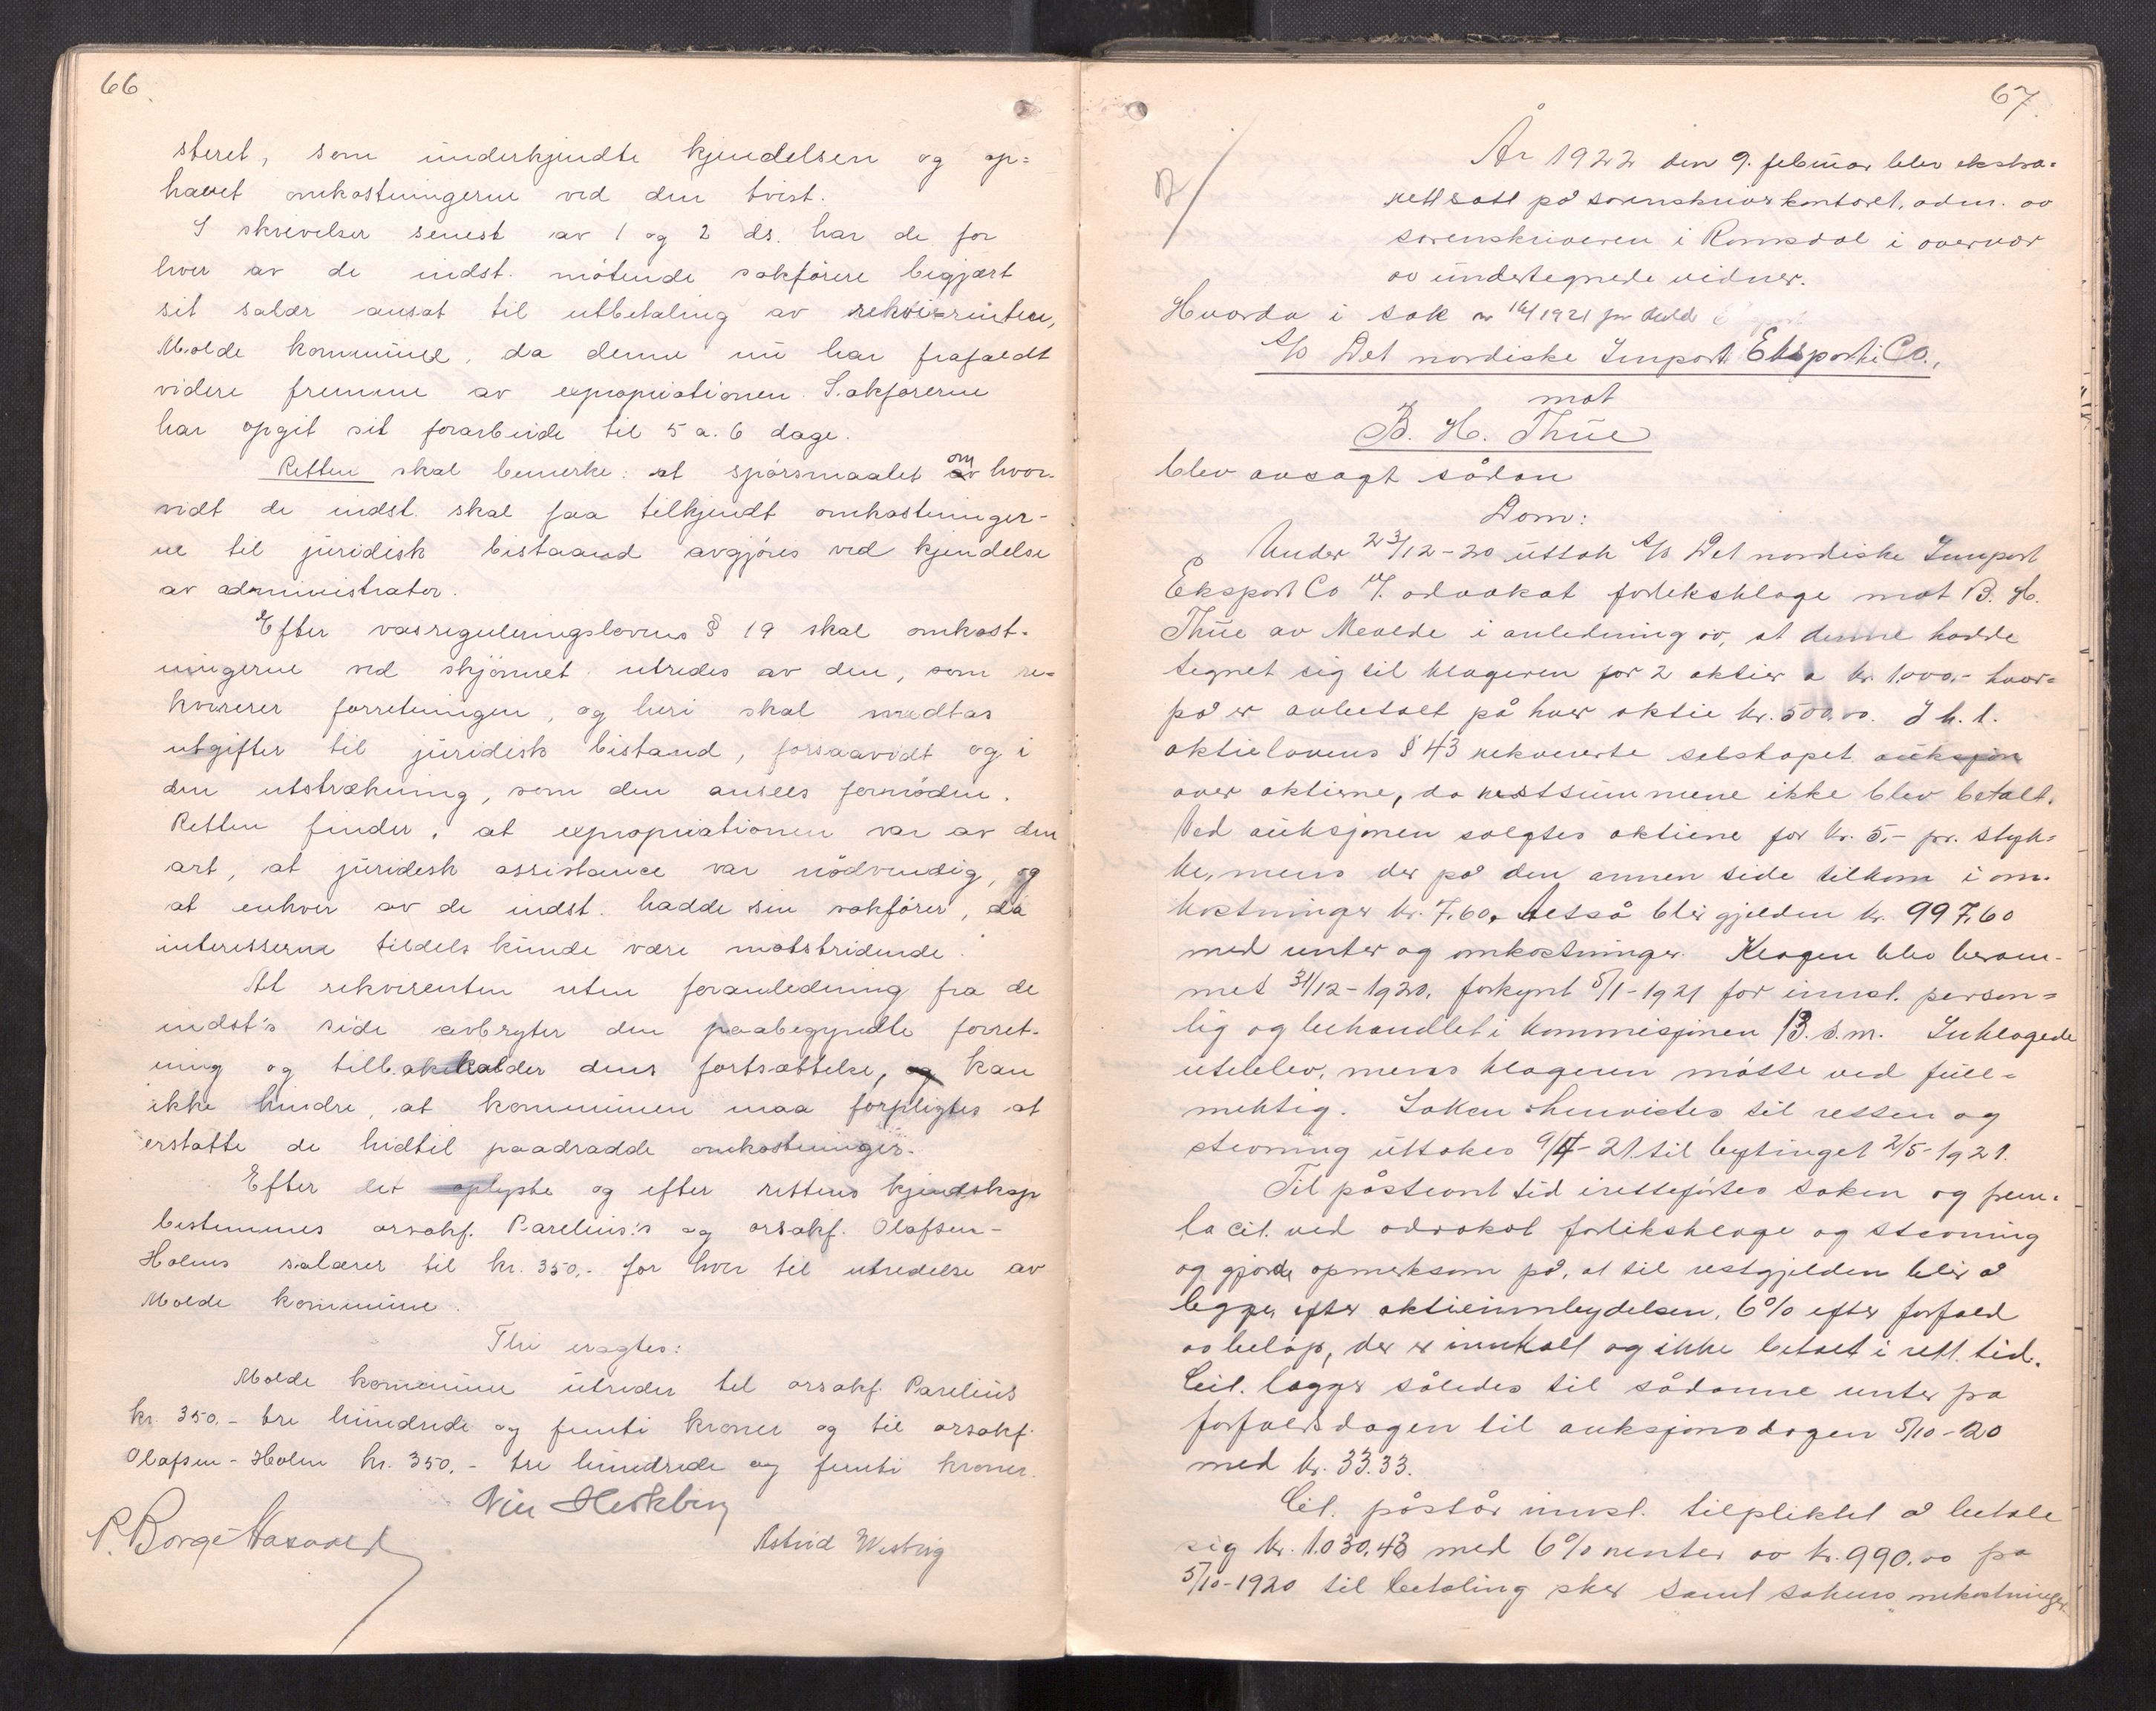 66.
steret, som underkjendte kjendelsen og op=
hævet omkostningerne ved den tvist.
I skrivelser senest av 1 og 2 ds. har de for
hver av de indst. mötende sakförere begjært
sit salær ansat til utbetaling av rekvirenten,
Molde kommune, da denne nu har frafaldt
videre fremme av expropriationen. Sakförerne
har opgit sit forarbeide til 5 a. 6 dage.
Retten skal bemerke: at spörsmaalet om hvor-
vidt de indst. skal faa tilkjendt omkostninger-
ne til juridisk bistaand avgjöres ved kjendelse
av administrator.
Efter vasreguleringslovens § 19 skal omkost-
ningerne ved skjönnet utredes av den, som re-
kvirerer forretningen, og heri skal medtas
utgifter til juridisk bistand, forsaavidt og i
den utstrækning, som den ansees fornöden.
Retten finder, at expropriationen var av den
art, at juridisk assistance var nödvendig, og
at enhver av de indst. hadde sin sakförer, da
interesserne tildels kunde være motstridende.
At rekvirenten uten foranledning fra de
indst's side avbryter den paabegyndte forret-
ning og tilbakekalder dens fortsættelse, kan
ikke hindre, at kommunen maa forpligtes at
erstatte de hidtil paadradde omkostninger.
Efter det oplyste og efter rettens kjendskap
bestemmes orsakf. Parelius's og orsakf. Olafsen-
Holms salærer til kr. 350,- for hver til utredelse av
Molde kommune.
Thi eragtes:
Molde kommune utreder til orsakf. Parelius
kr. 350.- tre hundrede og femti kroner og til orsakf.
Olafsen-Holm kr. 350.- tre hundrede og femti kroner.
P. Borge
Astrid Westing
67.
År 1922 den 9. februar blev ekstra-
rett satt på sorenskriverkontoret, adm. av
sorenskriveren i Romsdal i overvær
av undertegnede vidner.
Hvorda i sak nr 16/1921
A/S Det nordiske Import Eksport Co.,
mot
B. H. Thüe
blev avsagt sådan
Dom:
Under 23/12-20 uttok A/S Det nordiske Import
Eksport Co v/ advokat forliksklage mot B. H.
Thüe av Molde i anledning av, at denne hadde
tegnet sig til klageren for 2 aktier a kr. 1.000,- hvor-
på er anbetalt på hver aktie kr. 500,00. I h. t.
aktielovens § 43 rekvirerte selskapet auksjon
over aktierne, da restsummene ikke blev betalt.
Ved auksjonen solgtes aktiene for kr. 5,- pr. styk-
ke, mens der på den annen side tilkom i om-
kostninger kr. 7,60. Altså blir gjelden kr. 997,60
med renter og omkostninger. Klagen blev beram-
met 31/12-1920, forkynt 5/1-1921 for innst. person-
lig og behandlet i kommisjonen 13. s.m. Inklagede
uteblev, mens klageren møtte ved full-
mektig. Saken henvistes til retten og
stevning uttokes 9/4-21. til bytinget 2/5-1921.
Til påstevnt tid iretteførtes saken og frem-
la cit. ved advokat forliksklage og stevning
og gjorde opmerksom på, at til restgjelden blir å
legge, efter aktieinnbydelsen, 6% efter forfald
av beløp, der er innkalt og ikke betalt i rett tid.
Cit. lægger således til sådanne renter fra
forfaldsdagen til auksjonsdagen 5/10-20
med kr. 33.33.
Cit. påstår innst. tilpliktet å betale
sig kr. 1.030,43 med 6% renter av kr. 990,00 fra
5/10-1920 til betaling sker samt sakens omkostninger.